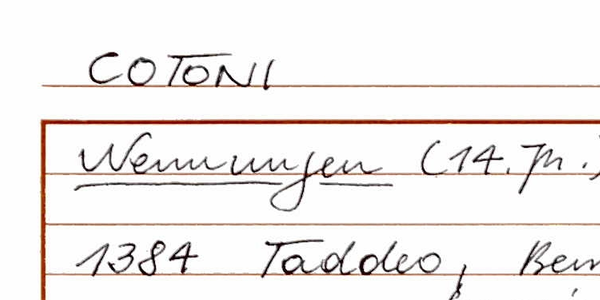 COTONI
Nennungen (14. Jh.)
1384 Taddeo, Ber